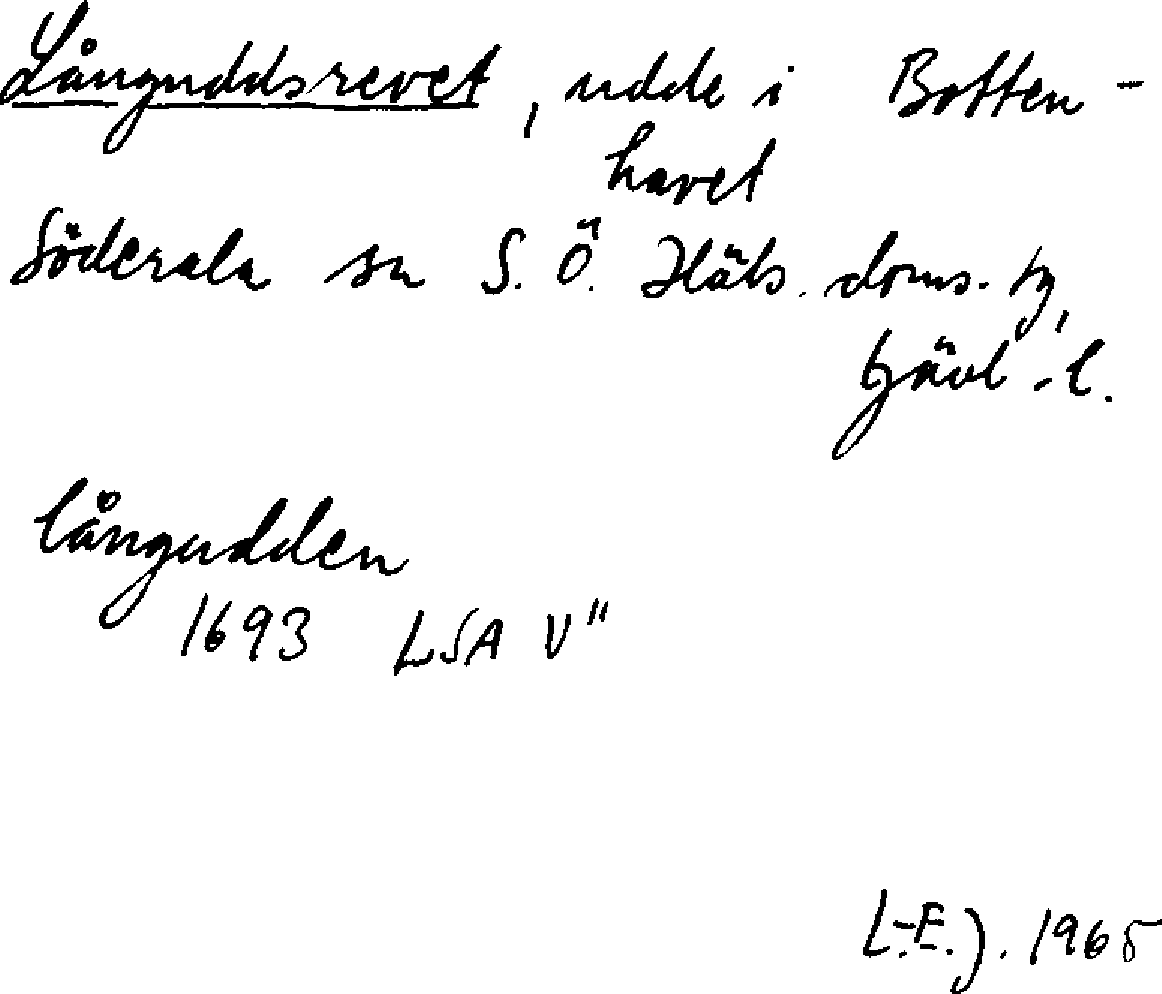 Långuddsrevet, udde i Botten-
havet
Söderala sn S.Ö. Häls. doms. tg,
Gävl.l.
långudden
1693 LSA V"
L.-E.J. 1965